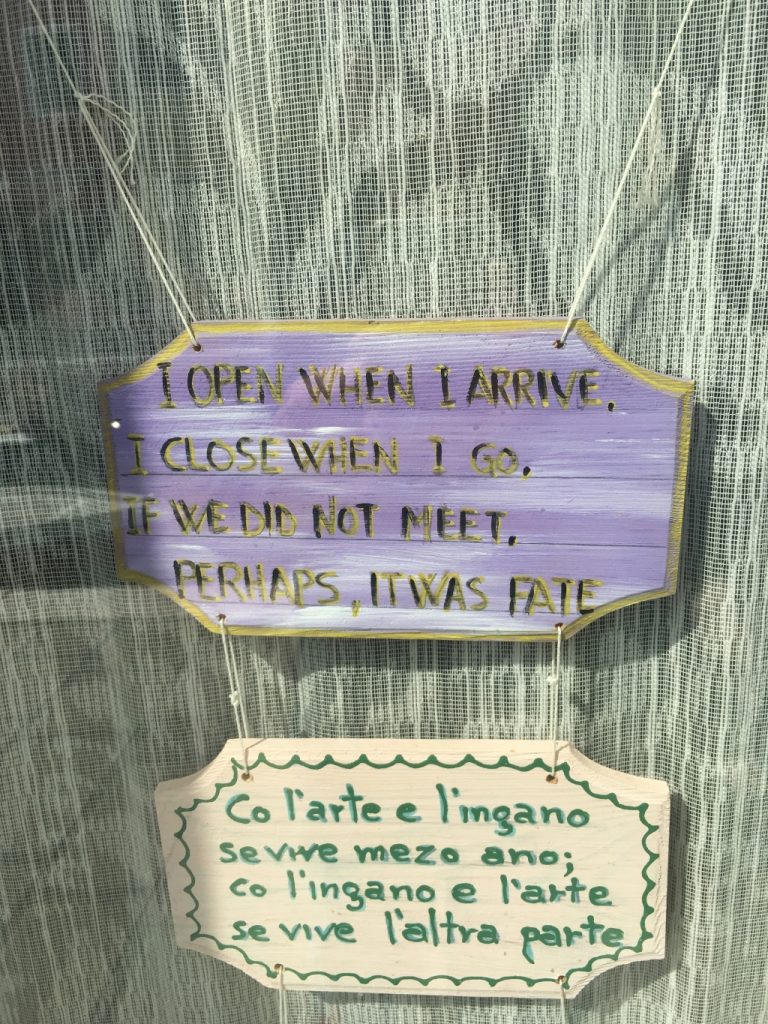 I OPEN WHEN I ARRIVE.
I CLOSE WHEN I GO.
IF WE DID NOT MEET.
PERHAPS, IT WAS FATE
Co l'arte e l'ingano
se vive mezo ano;
co l'ingano e l'arte
se vive l'altra parte